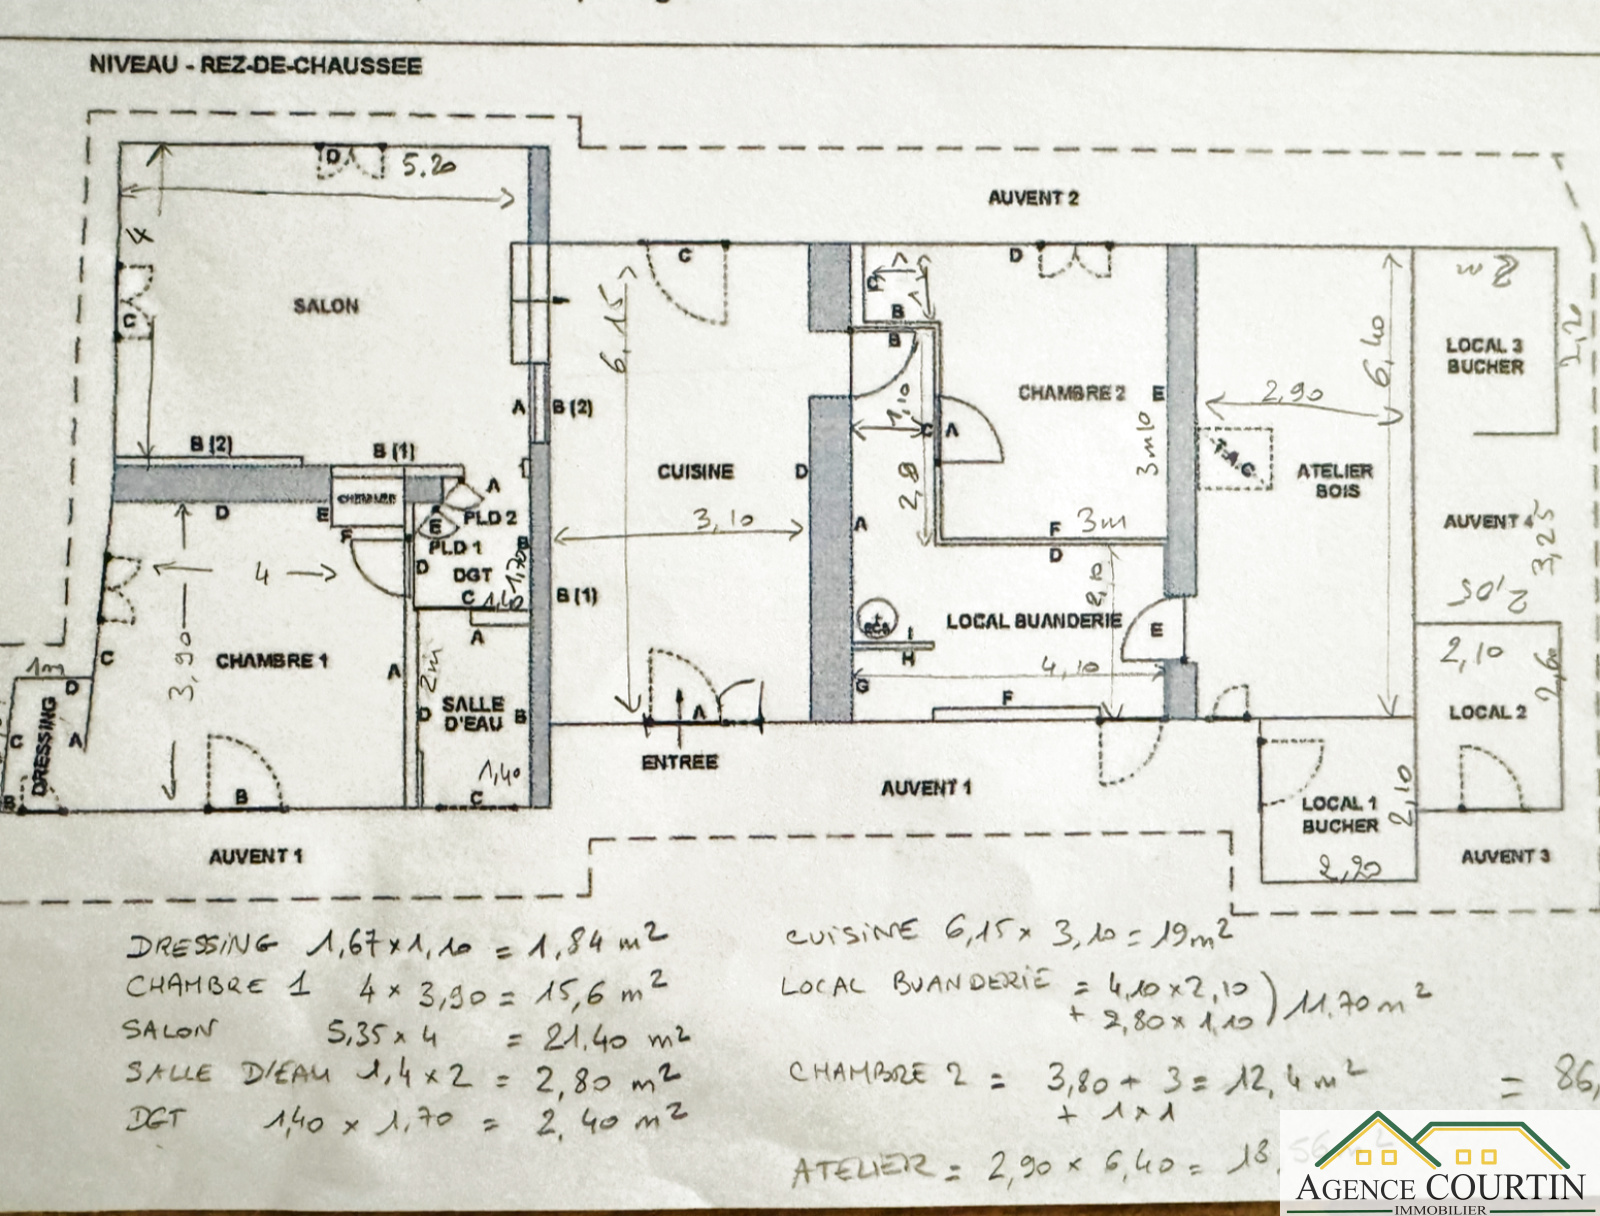 NIVEAU - REZ-DE-CHAUSSEE
D
5.20
AUVENT 2
4
C
D
SALON
C
6,15
B
B
1
2m
LOCAL 3
BUCHER
2,20
6,40
2,90
CHAMBRE 2
E
A
B (2)
1,10
C
A
3m10
B (2)
B (1)
CUISINE
D
T.A.C.
ATELIER
BOIS
D
E
A
PLD 2
E
PLD 1
F
B
D
DGT
1,70
C
1,40
3,10
2,8
A
F
3m
D
AUVENT 4
3,25
2,05
4
B (1)
2,10
LOCAL BUANDERIE
E
I
H
4,10
G
F
C
CHAMBRE 1
3,90
A
A
2m
SALLE
D'EAU
D
B
1,40
C
1m
D
DRESSING
C
A
B
B
A
ENTREE
2,10
2,60
LOCAL 2
AUVENT 1
AUVENT 1
LOCAL 1
BUCHER
2,10
2,20
AUVENT 3
DRESSING 1,67 x 1,10 = 1,84 m²
CHAMBRE 1 4 x 3,90 = 15,6 m²
SALON 5,35 x 4 = 21.40 m²
SALLE D'EAU 1,4 x 2 = 2,80 m²
DGT 1,40 x 1,70 = 2,40 m²
CUISINE 6,15 x 3,10 = 19 m²
LOCAL BUANDERIE = 4,10 x 2,10
+ 2,80 x 1,10 ) 11.70 m²
CHAMBRE 2 = 3,80 + 3 = 12,4 m²
+ 1 x 1
= 86,
ATELIER = 2,90 x 6,40 = 18,56 m²
AGENCE COURTIN
IMMOBILIER